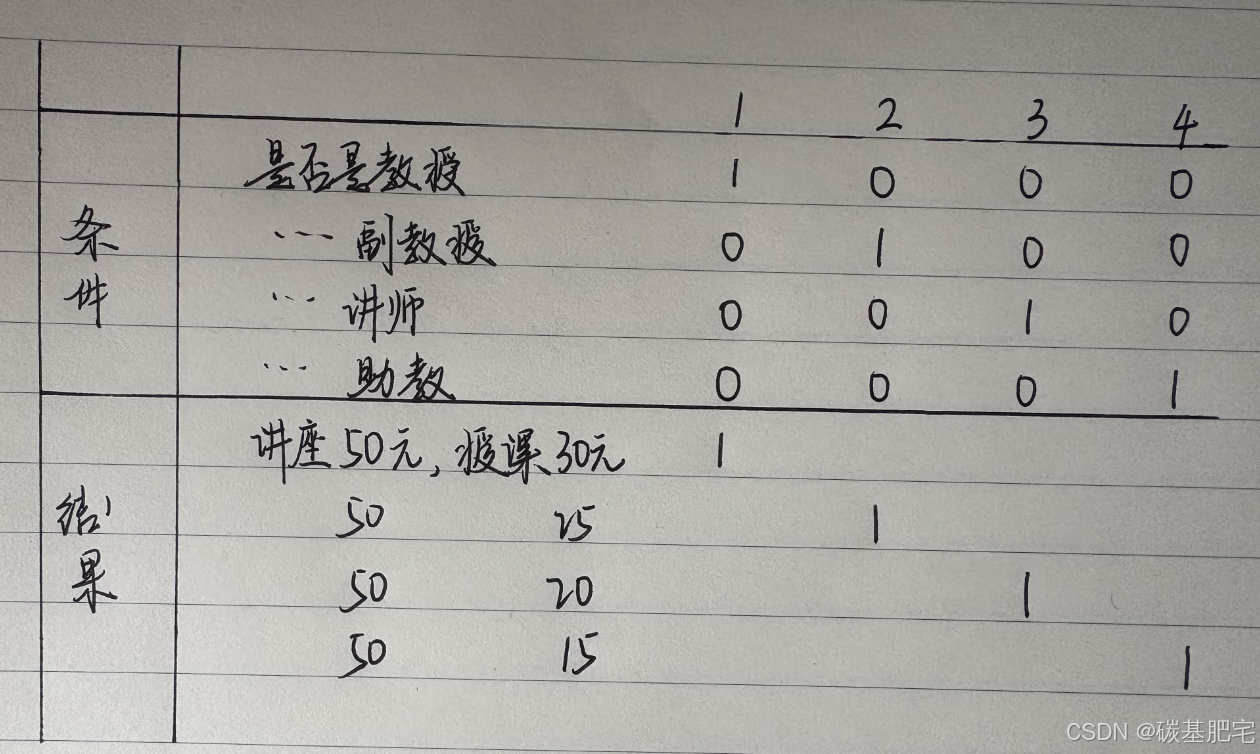 1 2 3 4
是否是教授 1 0 0 0
条件
... 副教授 0 1 0 0
... 讲师 0 0 1 0
... 助教 0 0 0 1
讲座50元,授课30元 1
结果
50 25 1
50 20 1
50 15 1
CSDN @碳基肥宅